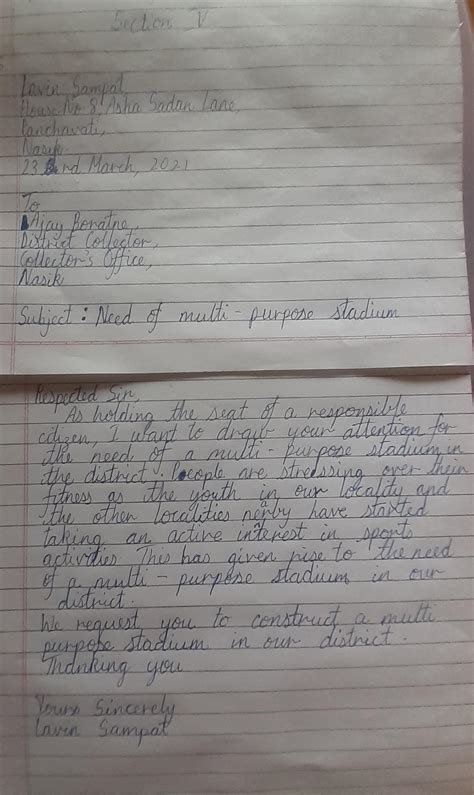 Section V
Lavin Sampat,
House No 8, Asha Sadan Lane,
Panchavati,
Nasik.
23rd March, 2021
To
Ajay Boratne,
District Collector,
Collector's Office,
Nasik
Subject : Need of multi - purpose stadium
Respected Sir,
As holding the seat of a responsible
citizen, I want to draw your attention for
the need of a multi - purpose stadium in
the district. People are stressing over their
fitness as the youth in our locality and
the other localities nerby have started
taking an active interest in sports
activities. This has given rise to the need
of a multi - purpose stadium in our
district.
We request you to construct a multi
purpose stadium in our district.
Thanking you
Yours Sincerely
Lavin Sampat